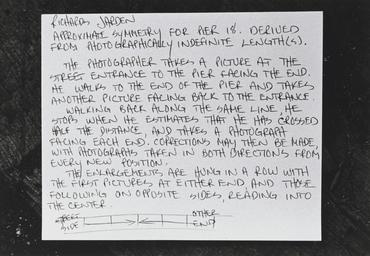 RICHARDS JARDEN
APPROXIMATE SYMMETRY FOR PIER 18. DERIVED
FROM PHOTOGRAPHICALLY INDEFINITE LENGTH(S).
THE PHOTOGRAPHER TAKES A PICTURE AT THE
STREET ENTRANCE TO THE PIER FACING THE END.
HE WALKS TO THE END OF THE PIER AND TAKES
ANOTHER PICTURE FACING BACK TO THE ENTRANCE.
WALKING BACK ALONG THE SAME LINE, HE
STOPS WHEN HE ESTIMATES THAT HE HAS CROSSED
HALF THE DISTANCE, AND TAKES A PHOTOGRAPH
FACING EACH END. CORRECTIONS MAY THEN BE MADE,
WITH PHOTOGRAPHS TAKEN IN BOTH DIRECTIONS FROM
EVERY NEW POSITION.
THE ENLARGEMENTS ARE HUNG IN A ROW WITH
THE FIRST PICTURES AT EITHER END AND THOSE
FOLLOWING ON OPPOSITE SIDES, READING INTO
THE CENTER.
STREET SIDE
OTHER END